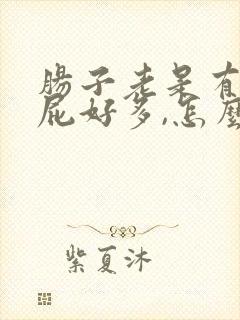 腸子老是有
屁好多,怎麼
紫夏沐